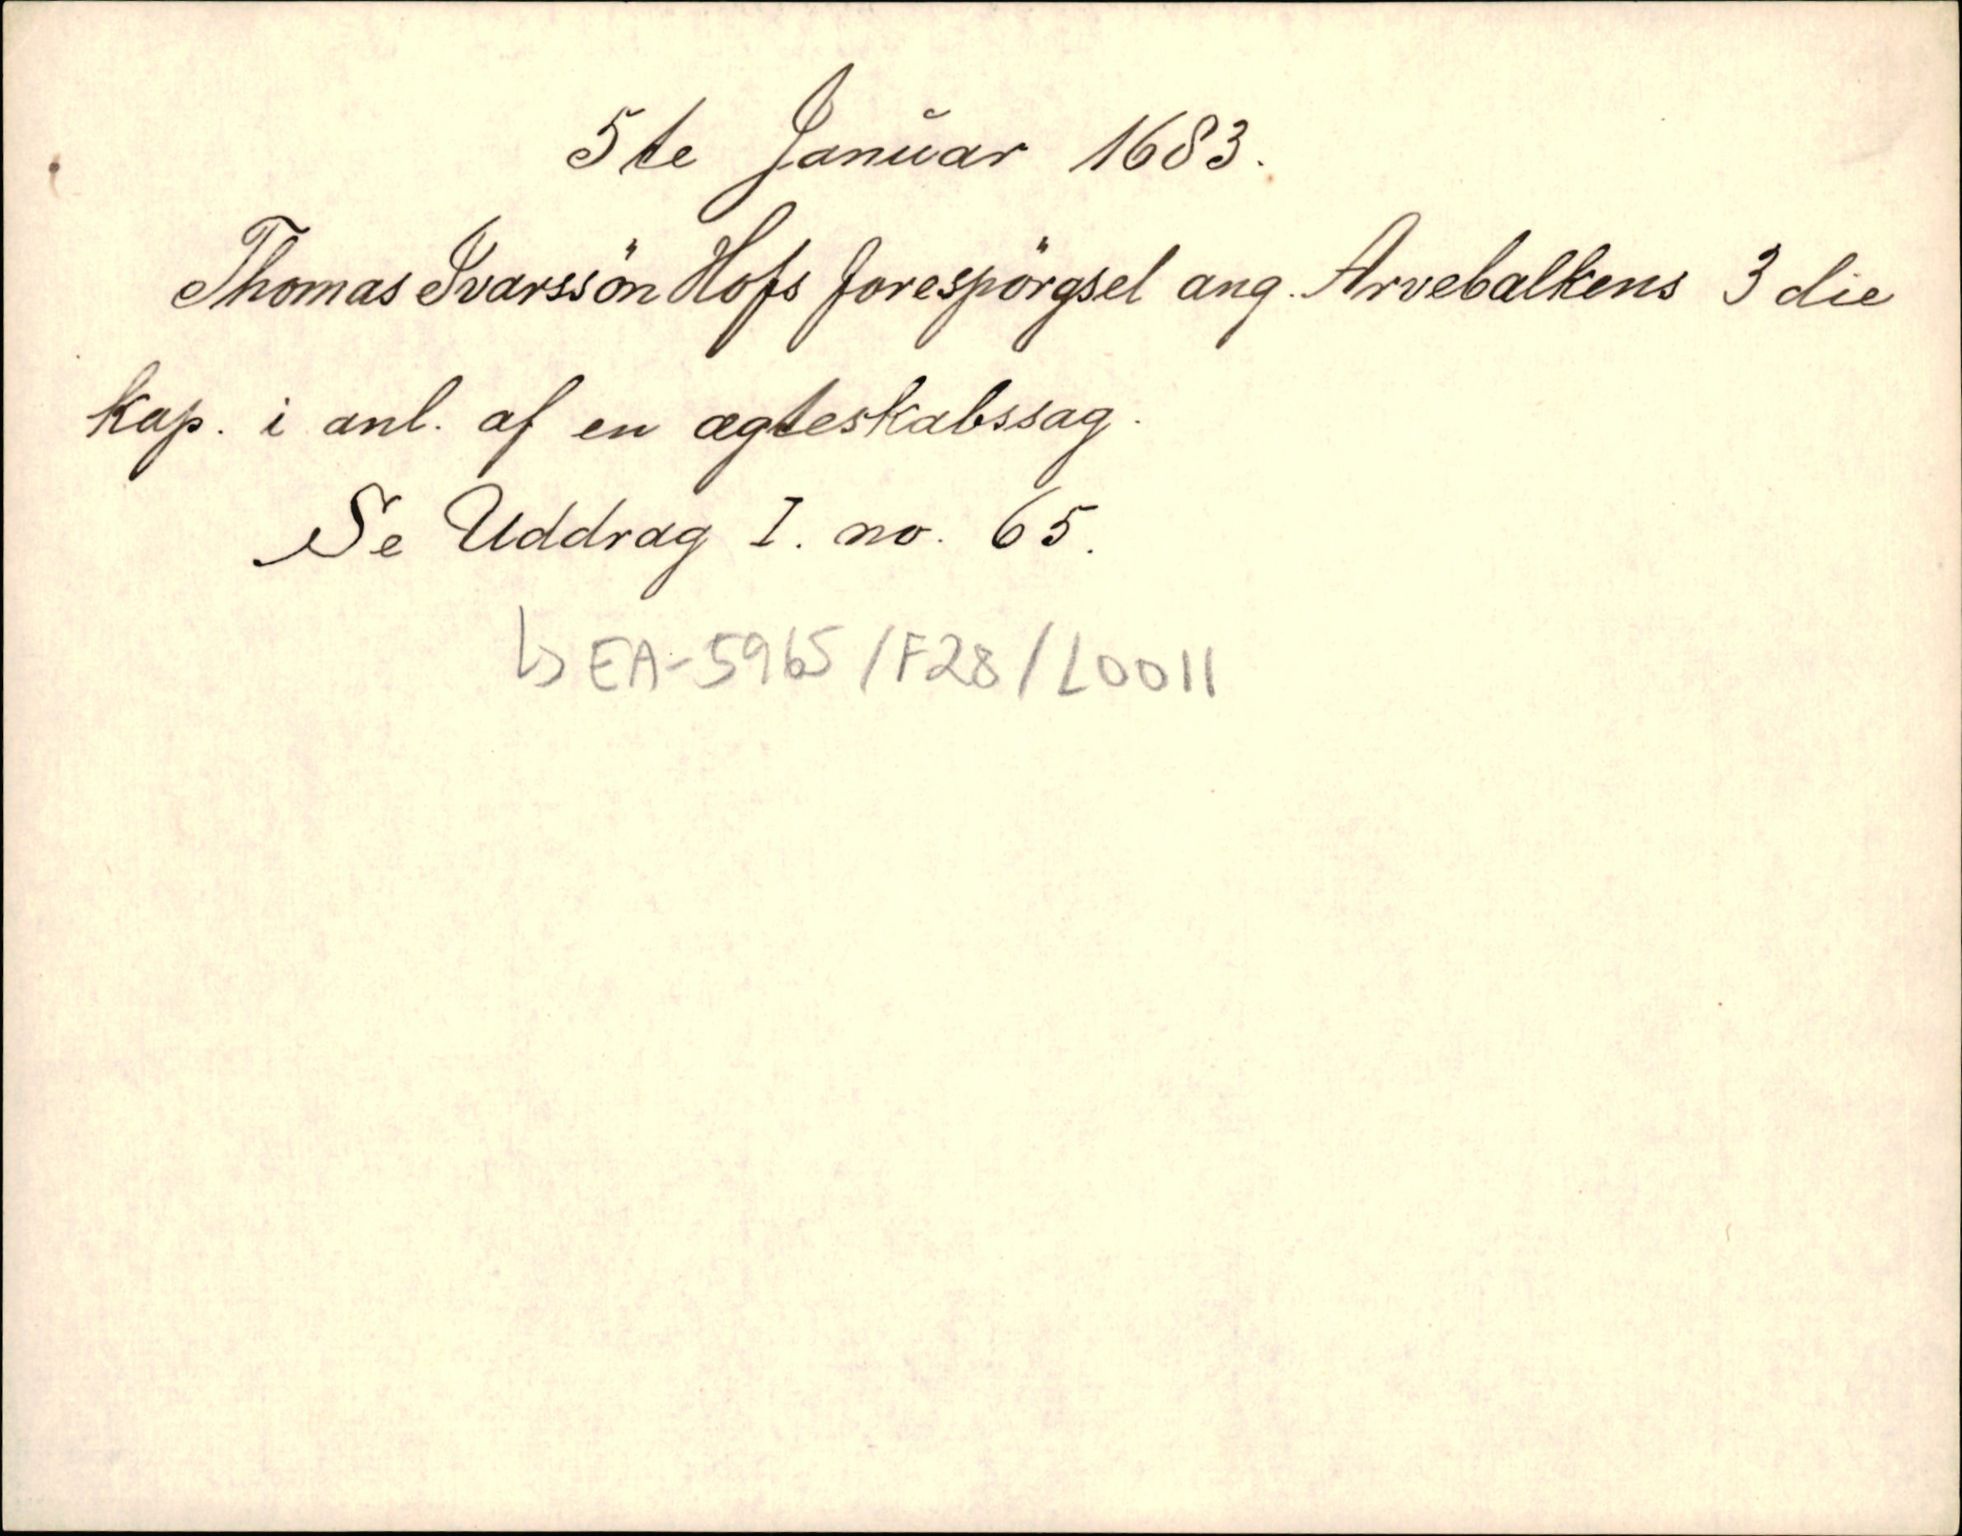 5te Januar 1683.
Thomas Ivarssön Hofs forespörgsel ang. Arvebalkens 3die
kap. i anl. af en ægteskabssag.
Se Uddrag I. no. 65.
↳ EA-5965/F28/L0011